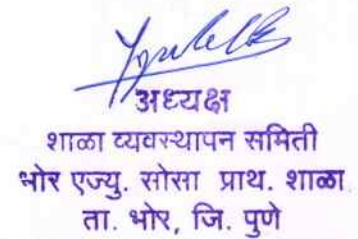 अध्यक्ष
शाळा व्यवस्थापन समिती
भोर एज्यु. सोसा प्राथ. शाळा
ता. भोर, जि. पुणे